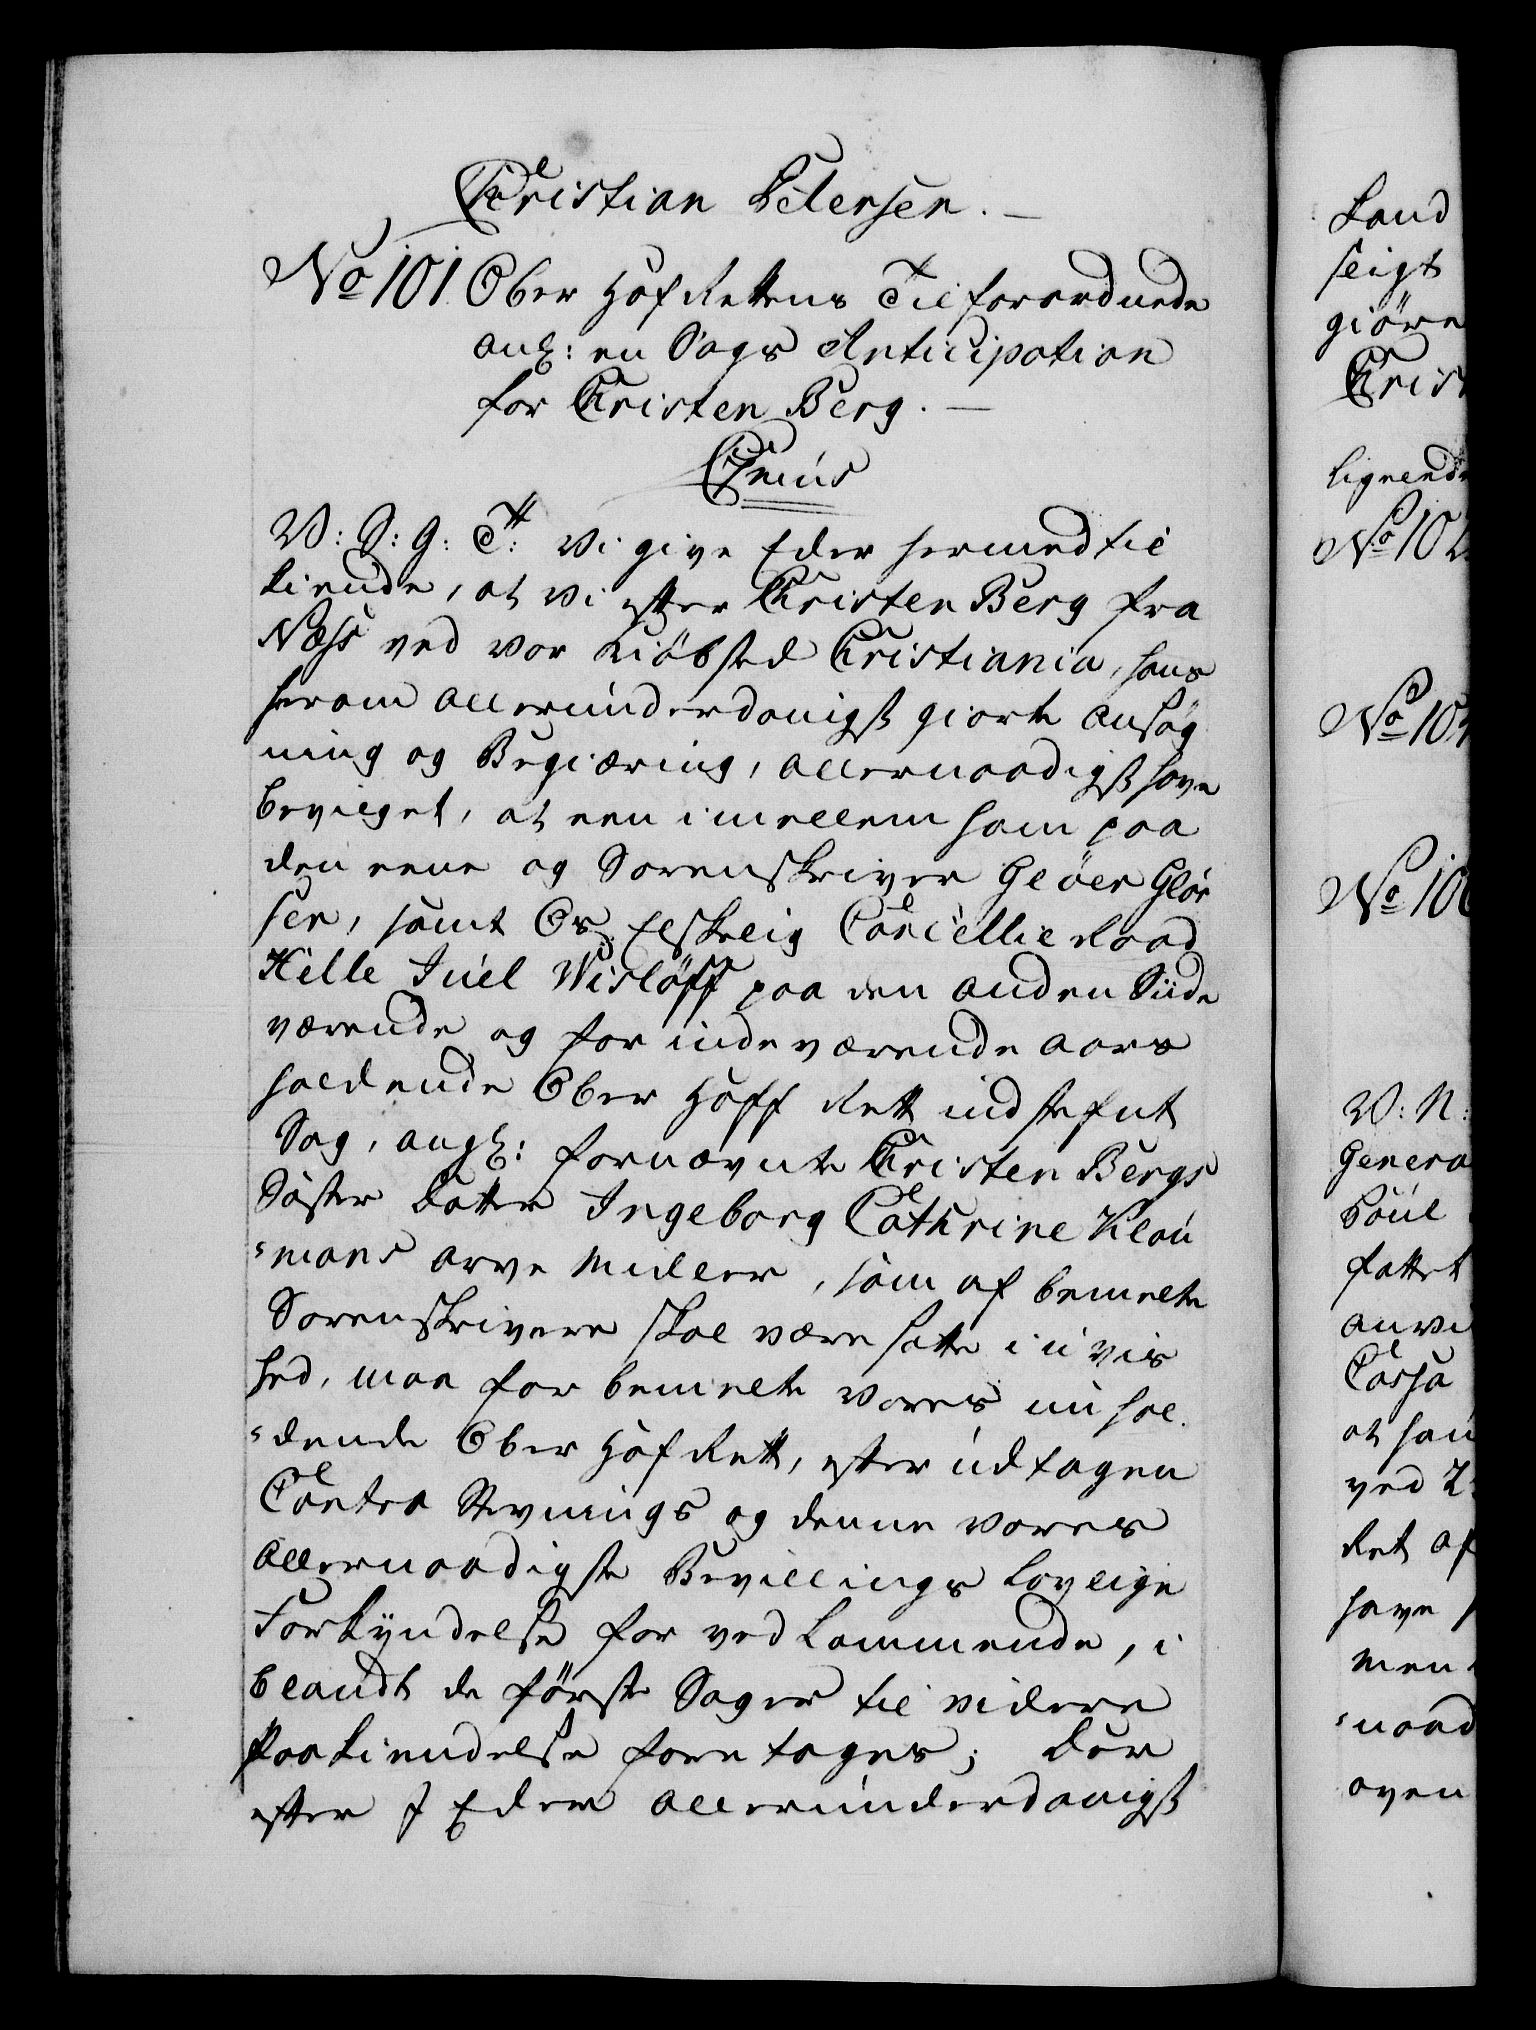 Christian Petersen. —
No 101 Ober Hof Rettens Tilforordnede
anl: en Sags Anticipation
for Christen Berg. —
C7mus
V: S: G: T: Vi give Eder hermed til
kiende, at Vi efter Christen Berg fra
Næss ved vor Kiöbsted Christiania, hans
herom allerunderdanigst giorte Ansøg
ning og Begiæring, allernaadigst have
bevilget, at een imellem ham paa
den eene og Sorenskriver Glöer Glör
sen, samt Os Elskelig Cancellie Raad
Hille Juel Wislöff paa den anden Siide
værende og for indeværende Aars
holdende Ober Hoff Rett indstefnt
Sag, angl: fornævnte Christen Bergs
Søster Datter Ingeborg Cathrine Klou
=mans arve Midler, som af bemelte
Sorenskrivere skal være satte i uvis
hed, maa for bemelte vores nu hol
=dende Ober Hof Rett, efter udtagen
Contra Stevnings og denne vores
allernaadigste Bevillings lovlige
Forkyndelse for vedkommende, i
blandt de förste Sager til videre
Paakiendelse foretages; Der
efter I Eder allerunderdanigst
Land
seigt
giöre
Christ
lignende
No 102
No 10
No 10
V: N:
Genera
Poul
fattet
anvi
Cassa
at han
ved 2
Ret af
have
men
=naad
oven